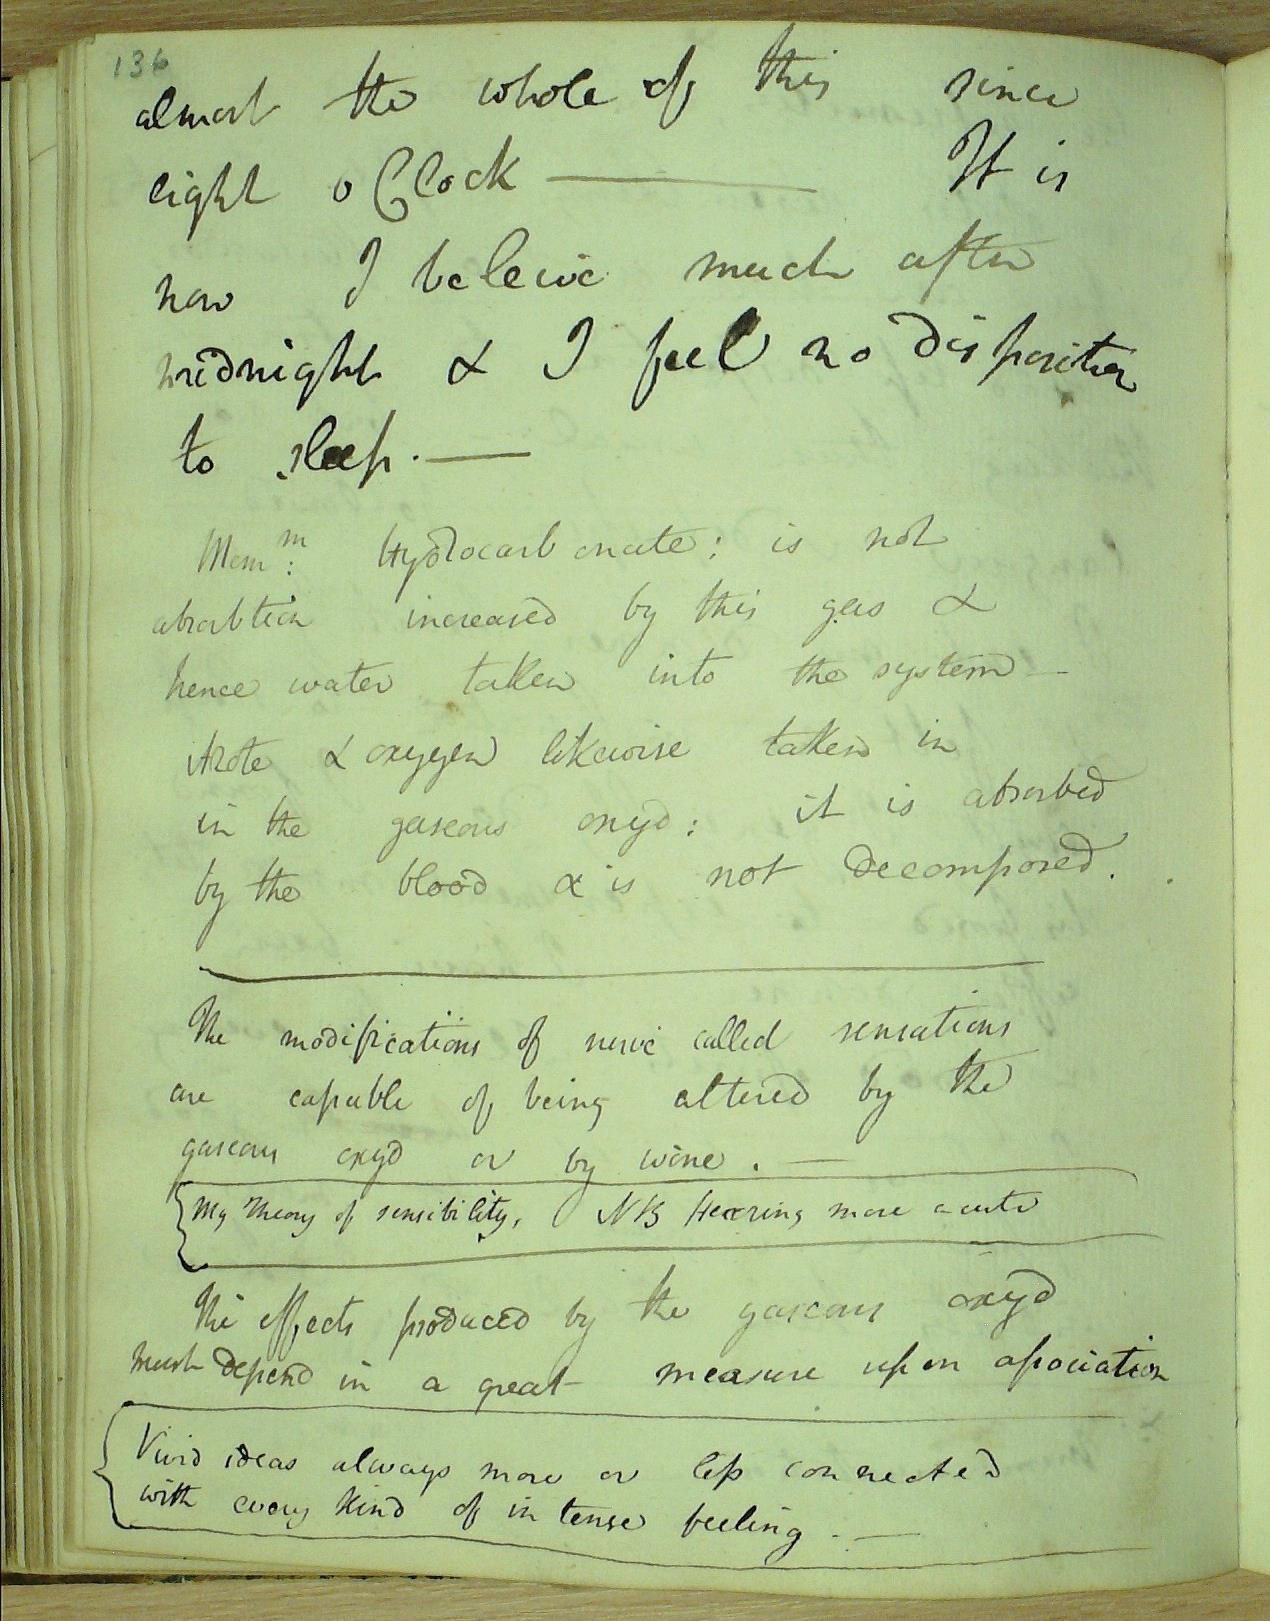 136
almost the whole of this since
eight oClock — It is
now I beleive much after
midnight & I feel no disposition
to sleep. —
Mem.m: Hydrocarbonate: is not
absorbtion increased by this gas &
hence water taken into the system —
Azote & oxygen likewise taken in
in the gaseous oxyd: it is absorbed
by the blood & is not decomposed.
The modifications of nerve called sensations
are capable of being altered by the
gaseous oxyd or by wine. —
My Theory of sensibility, NB Hearing more acute
The effects produced by the gaseous oxyd
must depend in a great measure upon aſsociation
Vivid ideas always more or leſs connected
with every kind of intense feeling. —